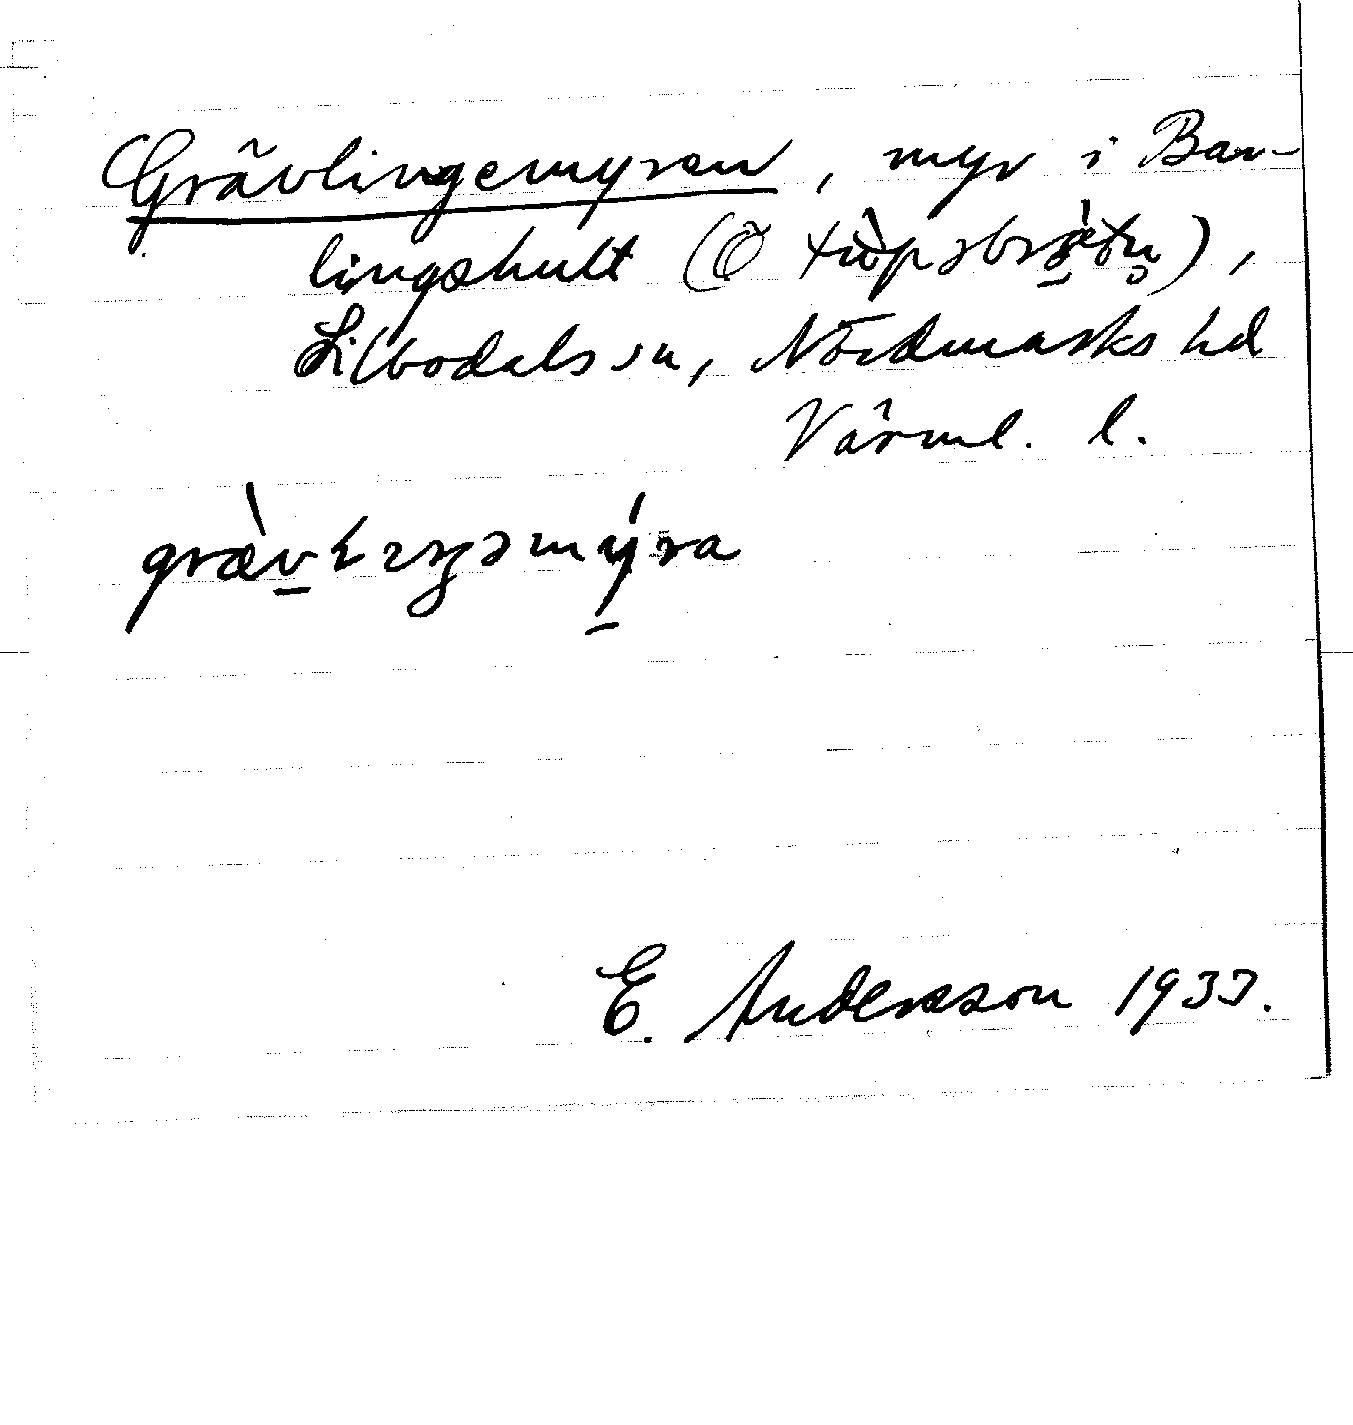 Grävlingemyren, myr i Bar-
lingshult (Ö),
Silbodals sn, Nordmarks hd
Värml. l.
E. Andersson 1933.